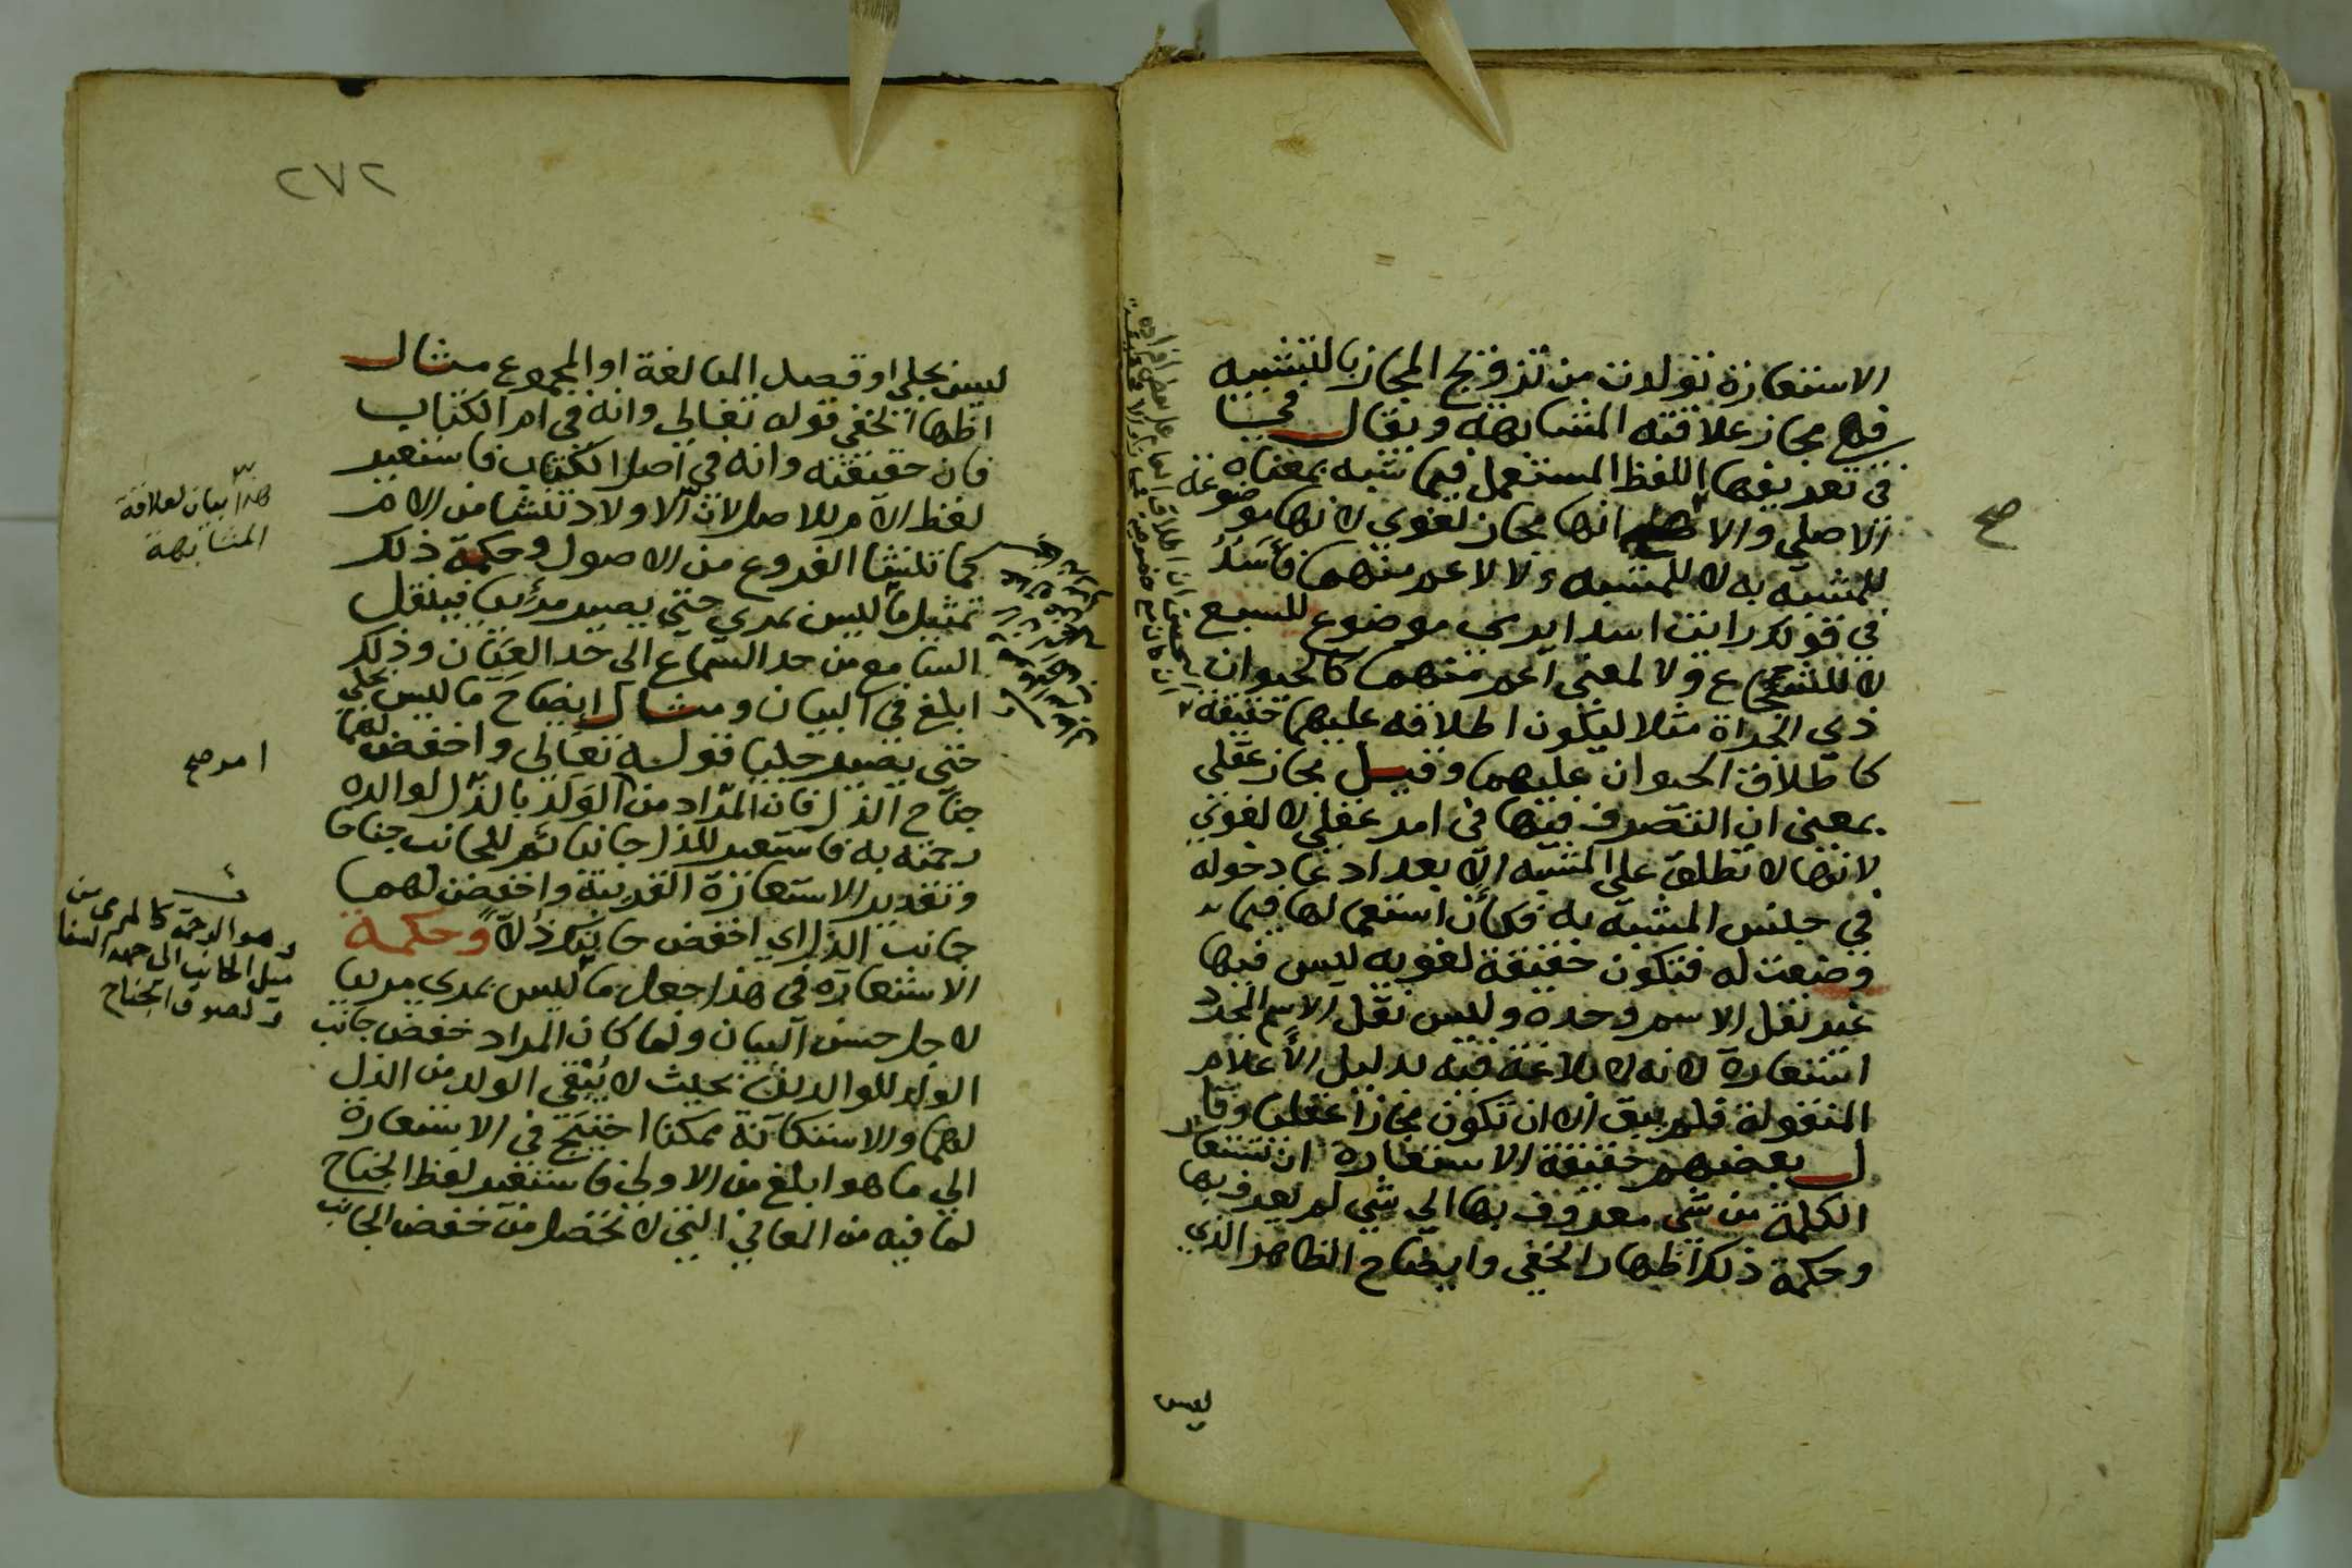 الاستعارة تولدت من تزويج المجاز بالتشبيه
فهي مجاز علاقته المشابهة ويقال
في تعريفها اللفظ المستعمل فيما شبه بمعناه
الاصلي والاصح انها مجاز لغوي لانها موضوعة
للمشبه به لا للمشبه ولا لاعم منهما فأسد
في قولك رايت اسدا يرمي موضوع للسبع
لا للشجاع ولا لمعنى اعم منهما كالحيوان
ذي الجراة مثلا ليكون اطلاقه عليهما حقيقة
كاطلاق الحيوان عليهما وقيل مجاز عقلي
بمعنى ان التصرف فيها في امر عقلي لا لغوي
لانها لا تطلق على المشبه الا بعد ادعا دخوله
في جنس المشبه به فكان استعمالها فيما
وضعت له فتكون حقيقة لغويه ليس فيها
غير نقل الاسم وحده وليس نقل الاسم المجرد
استعارة لانه لا بلاغة فيه بدليل الاعلام
المنقولة فلم يبق الا ان تكون مجازا عقليا وقا
ل بعضهم حقيقة الاستعارة ان تستعار
الكلمة من شي معروف بها الى شي لم يعرف بها
وحكمة ذلك اظهار الخفي وايضاح الظاهر الذي
ليس
صح
٢٧٢
ليس بجلي او قصد المبالغة او المجموع مثال
اظهار الخفي قوله تعالى وانه في ام الكتاب
فان حقيقته وانه في اصل الكتاب فاستعير
لفظ الام للاصل لان الاولاد تنشا من الام
كما تنشا الفروع من الاصول وحكمة ذلك
تمثيل ما ليس بمرئي حتى يصير مرئيا فينقل
السامع من حد السماع الى حد العيان وذلك
ابلغ في البيان ومثال ايضاح ما ليس بجلي
حتى يصير جليا قوله تعالى واخفض لهما
جناح الذل فان المراد من الولد بالذل لوالده
رحمته به فاستعير للذل جانبا ثم للجانب جناحا
وتقدير الاستعارة القريبة واخفض لهما
جانب الذل اي اخفض جانبك ذلا وحكمة
الاستعارة في هذا جعل ما ليس بمرئي مرئيا
لاجل حسن البيان ولما كان المراد خفض جانب
الولد للوالدين بحيث لا يبقي الولد من الذل
لهما والاستكانة ممكنا احتيج في الاستعارة
الى ما هو ابلغ من الاولى فاستعير لفظ الجناح
لما فيه من المعاني التي لا تحصل من خفض الجانب
هذا بيان لعلاقة
المشابهة
ميل الجانب الى جهة